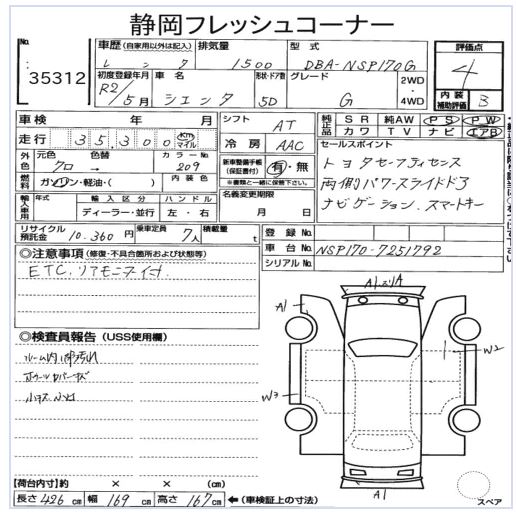 静岡フレッシュコーナー
No. 35312
車歴(自家用以外は記入) レンタ
排気量 1500
型式 DBA-NSP170G
評価点 4
内装補助評価 B
初度登録年月 R2/5月
車名 シエンタ
形状・ドア数 5D
グレード G
2WD・4WD
車検 年 月
シフト AT
純正品 SR 純AW PS PW
カワ TV ナビ エアB
走行 35,300 Km マイル
冷房 AAC
セールスポイント
トヨタセーフティセンス
両側パワースライドドア
ナビゲーション、スマートキー
外色 元色 クロ → 色替 カラーNo. 209
新車整備手帳(保証書付) 有・無
※書類と一緒に保管して下さい。
燃料 ガソリン・軽油・( ) 内装色
名義変更期限 月 日
輸入車用 年式 輸入区分 ハンドル
ディーラー・並行 左・右
リサイクル預託金 10,360円
乗車定員 7人
積載量 t
登録No.
車台No. NSP170-7251792
シリアルNo.
◎注意事項(修復・不具合箇所および状態等)
ETC、リアモニター付
◎検査員報告(USS使用欄)
ルーム内汚れ
小キズ
A1
A1
W2
W3
A1
スペア
【荷台内寸】約 × × (cm)
長さ 426 cm 幅 169 cm 高さ 167 cm ←(車検証上の寸法)